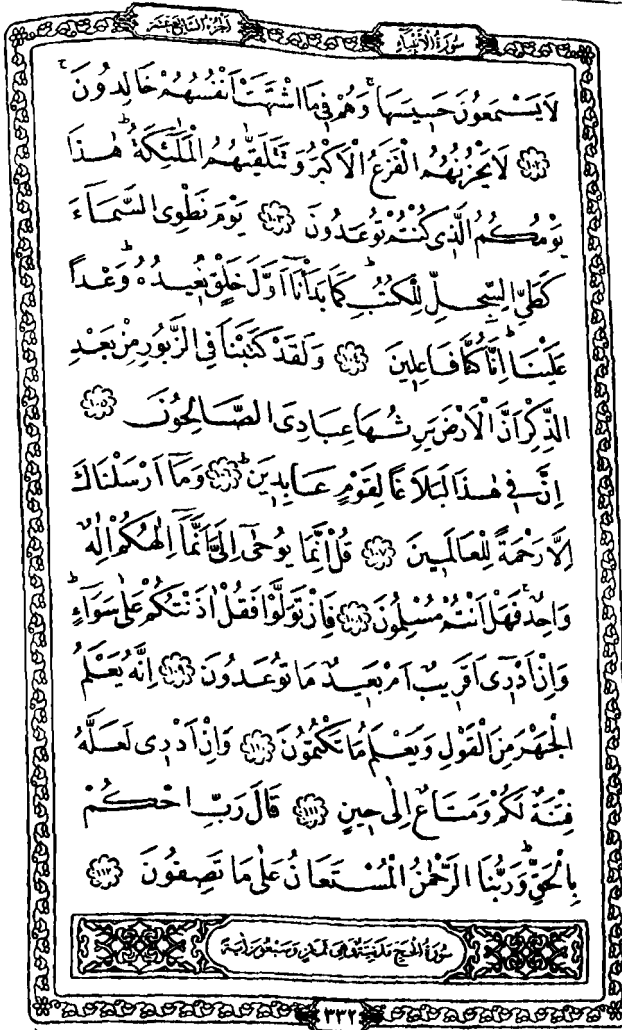 سُورَةُ الْأَنْبِيَاءِ
الجزء السابع عشر
لَا يَسْمَعُونَ حَسِيسَهَاۚ وَهُمْ فِي مَا اشْتَهَتْ اَنْفُسُهُمْ خَالِدُونَۚ
﴿١٠٢﴾ لَا يَحْزُنُهُمُ الْفَزَعُ الْاَكْبَرُ وَتَتَلَقّٰيهُمُ الْمَلٰٓئِكَةُۜ هٰذَا
يَوْمُكُمُ الَّذِي كُنْتُمْ تُوعَدُونَ ﴿١٠٣﴾ يَوْمَ نَطْوِي السَّمَٓاءَ
كَطَيِّ السِّجِلِّ لِلْكُتُبِۜ كَمَا بَدَأْنَٓا اَوَّلَ خَلْقٍ نُعِيدُهُۜ وَعْداً
عَلَيْنَاۜ اِنَّا كُنَّا فَاعِلِينَ ﴿١٠٤﴾ وَلَقَدْ كَتَبْنَا فِي الزَّبُورِ مِنْ بَعْدِ
الذِّكْرِ اَنَّ الْاَرْضَ يَرِثُهَا عِبَادِيَ الصَّالِحُونَ ﴿١٠٥﴾
اِنَّ فِي هٰذَا لَبَلَاغاً لِقَوْمٍ عَابِدِينَۜ ﴿١٠٦﴾ وَمَٓا اَرْسَلْنَاكَ
اِلَّا رَحْمَةً لِلْعَالَمِينَ ﴿١٠٧﴾ قُلْ اِنَّمَا يُوحٰٓى اِلَيَّ اَنَّمَٓا اِلٰهُكُمْ اِلٰهٌ
وَاحِدٌۚ فَهَلْ اَنْتُمْ مُسْلِمُونَ ﴿١٠٨﴾ فَاِنْ تَوَلَّوْا فَقُلْ اٰذَنْتُكُمْ عَلٰى سَوَٓاءٍۜ
وَاِنْ اَدْرِٓي اَقَرِيبٌ اَمْ بَعِيدٌ مَا تُوعَدُونَ ﴿١٠٩﴾ اِنَّهُ يَعْلَمُ
الْجَهْرَ مِنَ الْقَوْلِ وَيَعْلَمُ مَا تَكْتُمُونَ ﴿١١٠﴾ وَاِنْ اَدْرِي لَعَلَّهُ
فِتْنَةٌ لَكُمْ وَمَتَاعٌ اِلٰى حِينٍ ﴿١١١﴾ قَالَ رَبِّ احْكُمْ
بِالْحَقِّۜ وَرَبُّنَا الرَّحْمٰنُ الْمُسْتَعَانُ عَلٰى مَا تَصِفُونَ ﴿١١٢﴾
سُورَةُ الْحَجِّ مَدَنِيَّةٌ وَهِيَ ثَمَانٍ وَسَبْعُونَ اٰيَةً
٣٣٢